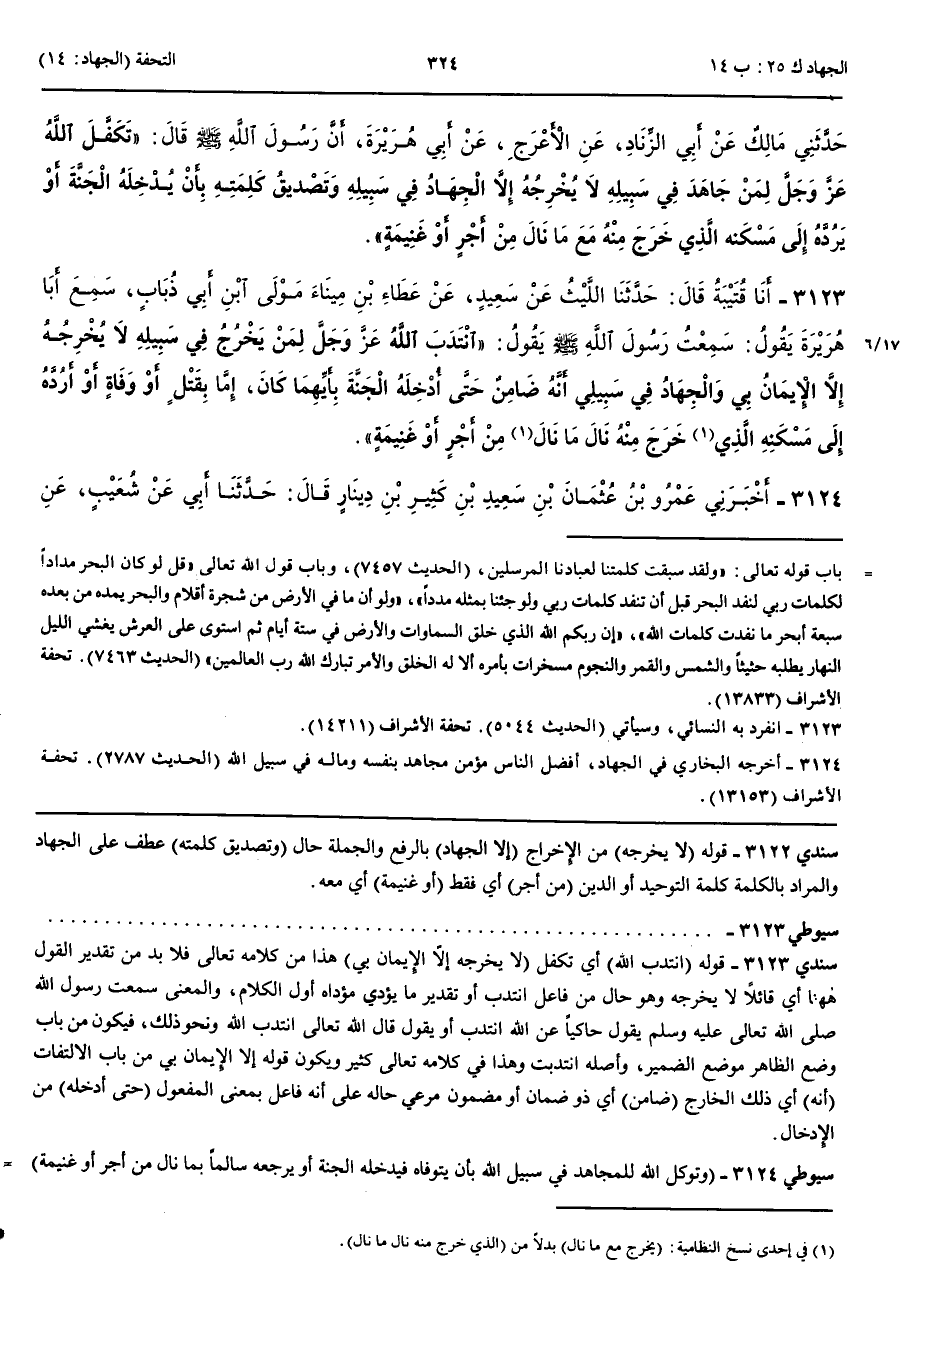 الجهاد ك ٢٥: ب ١٤
٣٢٤
التحفة (الجهاد: ١٤)
حَدَّثَنِي مَالِكٌ عَنْ أَبِي الزِّنَادِ، عَنِ الْأَعْرَجِ، عَنْ أَبِي هُرَيْرَةَ، أَنَّ رَسُولَ اللَّهِ ﷺ قَالَ: «تَكَفَّلَ اللَّهُ
عَزَّ وَجَلَّ لِمَنْ جَاهَدَ فِي سَبِيلِهِ لَا يُخْرِجُهُ إِلَّا الْجِهَادُ فِي سَبِيلِهِ وَتَصْدِيقُ كَلِمَتِهِ بِأَنْ يُدْخِلَهُ الْجَنَّةَ أَوْ
يَرُدَّهُ إِلَى مَسْكَنِه الَّذِي خَرَجَ مِنْهُ مَعَ مَا نَالَ مِنْ أَجْرٍ أَوْ غَنِيمَةٍ».
٣١٢٣ ـ أَنَا قُتَيْبَةُ قَالَ: حَدَّثَنَا اللَّيْثُ عَنْ سَعِيدٍ، عَنْ عَطَاءِ بْنِ مِينَاءَ مَوْلَى ابْنِ أَبِي ذُبَابٍ، سَمِعَ أَبَا
هُرَيْرَةَ يَقُولُ: سَمِعْتُ رَسُولَ اللَّهِ ﷺ يَقُولُ: «انْتَدَبَ اللَّهُ عَزَّ وَجَلَّ لِمَنْ يَخْرُجُ فِي سَبِيلِهِ لَا يُخْرِجُهُ
٦/١٧
إِلَّا الْإِيمَانُ بِي وَالْجِهَادُ فِي سَبِيلِي أَنَّهُ ضَامِنٌ حَتَّى أُدْخِلَهُ الْجَنَّةَ بِأَيِّهِمَا كَانَ، إِمَّا بِقَتْلٍ أَوْ وَفَاةٍ أَوْ أَرُدَّهُ
إِلَى مَسْكَنِهِ الَّذِي(١) خَرَجَ مِنْهُ نَالَ مَا نَالَ(١) مِنْ أَجْرٍ أَوْ غَنِيمَةٍ».
٣١٢٤ ـ أَخْبَرَنِي عَمْرُو بْنُ عُثْمَانَ بْنِ سَعِيدِ بْنِ كَثِيرِ بْنِ دِينَارٍ قَالَ: حَدَّثَنَا أَبِي عَنْ شُعَيْبٍ، عَنِ
= باب قوله تعالى: «ولقد سبقت كلمتنا لعبادنا المرسلين، (الحديث ٧٤٥٧)، وباب قول الله تعالى «قل لو كان البحر مداداً
لكلمات ربي لنفد البحر قبل أن تنفد كلمات ربي ولو جئنا بمثله مدداً»، «ولو أن ما في الأرض من شجرة أقلام والبحر يمده من بعده
سبعة أبحر ما نفدت كلمات الله»، «إن ربكم الله الذي خلق السماوات والأرض في ستة أيام ثم استوى على العرش يغشي الليل
النهار يطلبه حثيثاً والشمس والقمر والنجوم مسخرات بأمره ألا له الخلق والأمر تبارك الله رب العالمين» (الحديث ٧٤٦٣). تحفة
الأشراف (١٣٨٣٣).
٣١٢٣ ـ انفرد به النسائي، وسيأتي (الحديث ٥٠٤٤). تحفة الأشراف (١٤٢١١).
٣١٢٤ ـ أخرجه البخاري في الجهاد، أفضل الناس مؤمن مجاهد بنفسه وماله في سبيل الله (الحديث ٢٧٨٧). تحفة
الأشراف (١٣١٥٣).
سندي ٣١٢٢ ـ قوله (لا يخرجه) من الإخراج (إلا الجهاد) بالرفع والجملة حال (وتصديق كلمته) عطف على الجهاد
والمراد بالكلمة كلمة التوحيد أو الدين (من أجر) أي فقط (أو غنيمة) أي معه.
سيوطي ٣١٢٣ ـ . . . . . . . . . . . . . . . . . . . . . . . . . . . . . . . . . . . . . . . . . . . . . . . .
سندي ٣١٢٣ ـ قوله (انتدب الله) أي تكفل (لا يخرجه إلّا الإيمان بي) هذا من كلامه تعالى فلا بد من تقدير القول
ههنا أي قائلاً لا يخرجه وهو حال من فاعل انتدب أو تقدير ما يؤدي مؤداه أول الكلام، والمعنى سمعت رسول الله
صلى الله تعالى عليه وسلم يقول حاكياً عن الله انتدب أو يقول قال الله تعالى انتدب الله ونحو ذلك، فيكون من باب
وضع الظاهر موضع الضمير، وأصله انتدبت وهذا في كلامه تعالى كثير ويكون قوله إلا الإيمان بي من باب الالتفات
(أنه) أي ذلك الخارج (ضامن) أي ذو ضمان أو مضمون مرعي حاله على أنه فاعل بمعنى المفعول (حتى أدخله) من
الإدخال.
سيوطي ٣١٢٤ ـ (وتوكل الله للمجاهد في سبيل الله بأن يتوفاه فيدخله الجنة أو يرجعه سالماً بما نال من أجر أو غنيمة) =
(١) في إحدى نسخ النظامية: (يخرج مع ما نال) بدلاً من (الذي خرج منه نال ما نال).